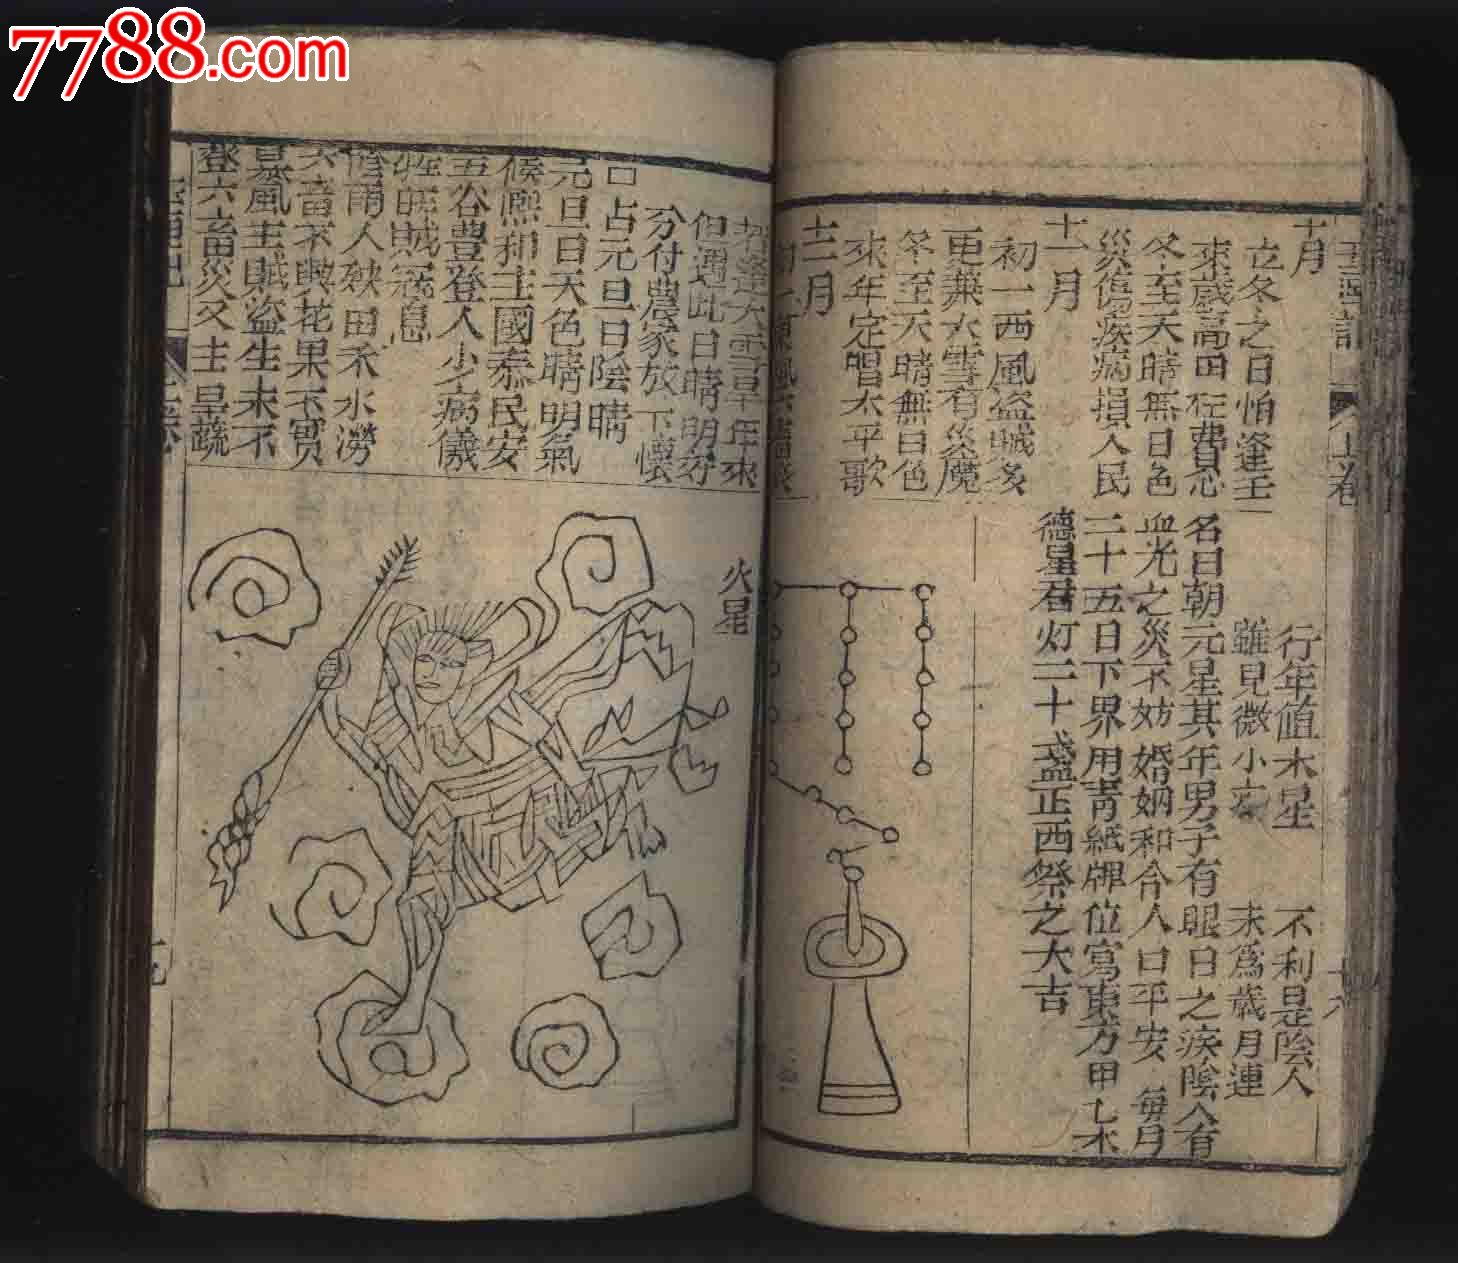 7788.com
十月
立冬之日怕逢壬
來歲高田枉費心
冬至天晴無日色
災傷疾病損人民
十一月
初一西風盜賊多
更兼大雪有災魔
冬至天晴無日色
來年定唱太平歌
十二月
行年值木星 不利是陰人
雖見微小 末為歲月連
名曰朝元星其年男子有眼日之疾陰人有
血光之災不妨婚姻和合人口平安每月
二十五日下界用青紙牌位寫東方甲乙木
德星君灯二十盞正西祭之大吉
上卷
但遇此日晴明好
分付農家放下懷
占元旦日陰晴
元旦日天色晴明氣
候熙和主國泰民安
五谷豐登人少病儀
旺賊寇息
陰雨人殃田禾水澇
六畜不興花果不實
暴風主賊盜生末不
登六畜災又主旱蔬
火星